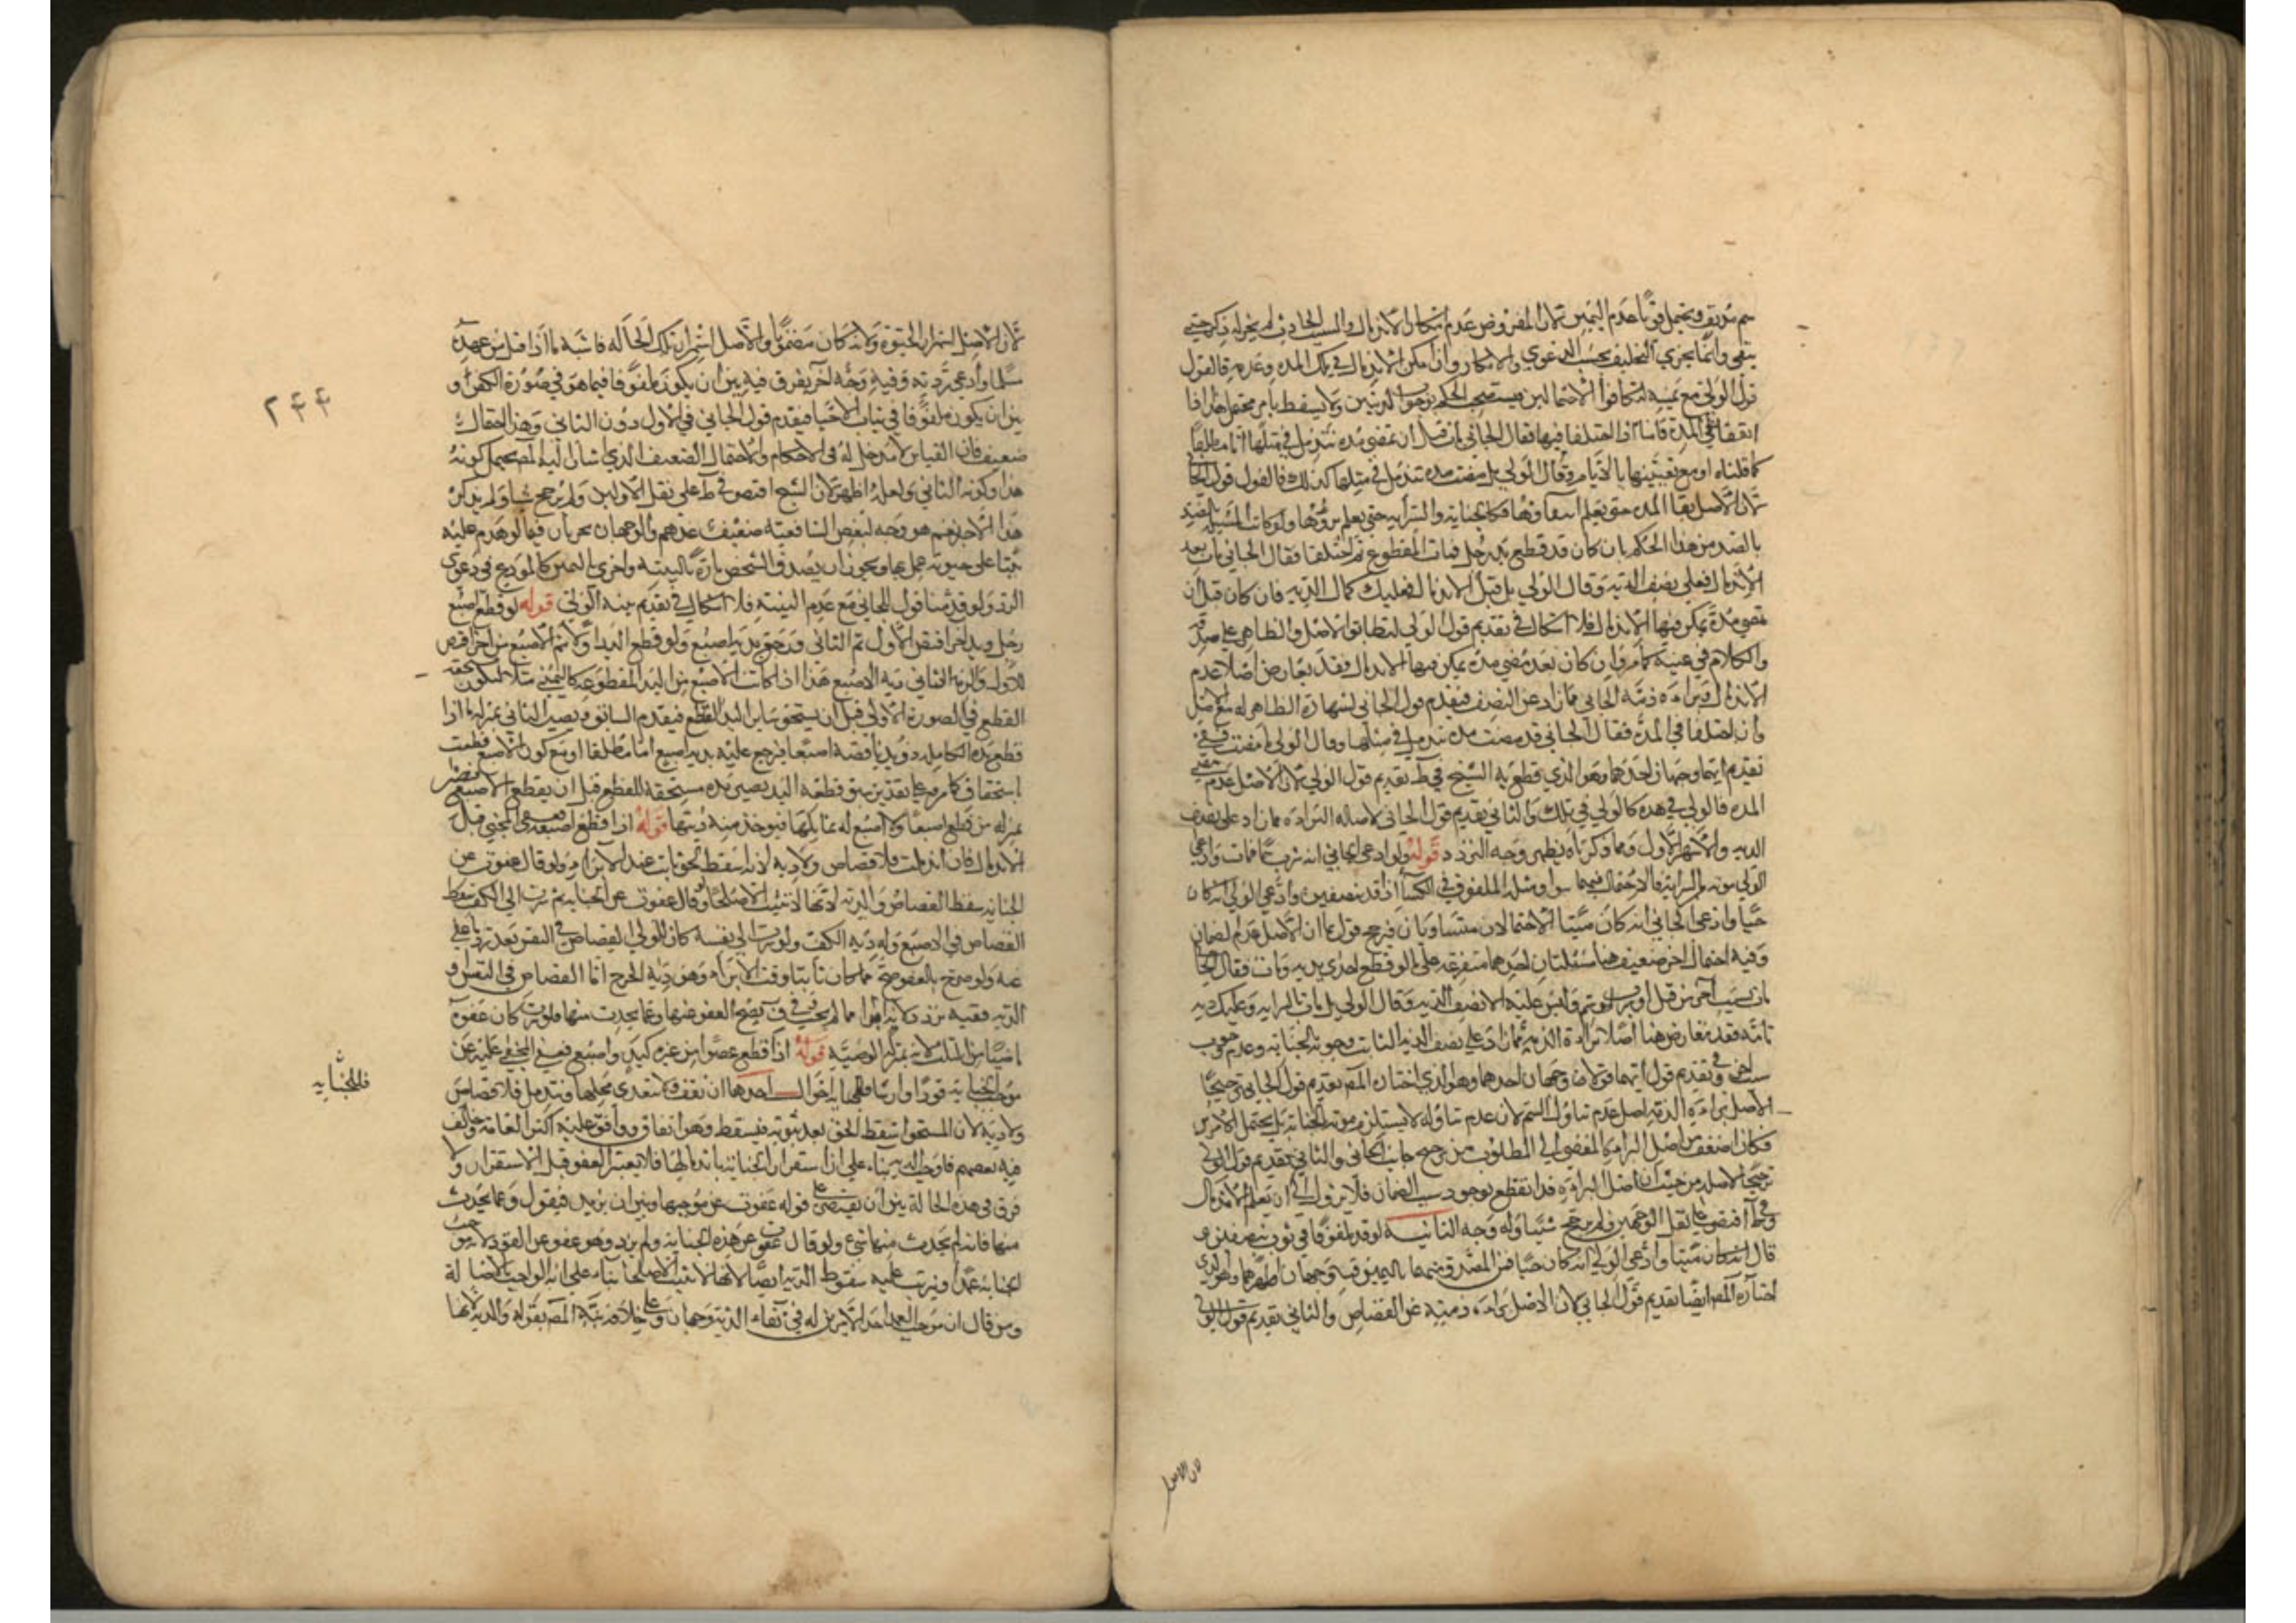 سم مذفف ويحتمل قويا عدم اليمين لان المفروض عدم امكان الاندمال والسبب الحادث لم يجر له ذكر حتى
ينفى وانما يجرى التحليف بحسب الدعوى والانكار وان امكن الاندمال فى تلك المدة وعدمه فالقول
قول الولى مع يمينه لتكافوا الاحتمالين فيستصحب الحكم بوجوب الديتين ولا يسقط بامر محتمل هذا اذا
اتفقا على المدة فاما اذا اختلفا فيها فقال الجانى مات قبل ان تمضى مدة تندمل فى مثلها اما مطلقا
كما قلناه او مع تعيينها بالايام وقال الولى بل مضت مدة تندمل فى مثلها كذلك فالقول قول الجا
لان الاصل بقا المدة حتى يعلم وكان الجناية والسراية حتى يعلم ولو كانت المسئلة
بالضد من هذا الحكم بان كان قد قطع يد رجل فمات المقطوع ثم اختلفا فقال الجانى مات بعد
الاندمال فعلى نصف الدية وقال الولى بل قبل الاندمال فعليك كمال الدية فان كان قبل ان
تمضى مدة يمكن فيها الاندمال فلا اشكال فى تقديم قول الولى لتطابق الاصل والظاهر على صدقه
والكلام فى يمينه كما مر وان كان بعد مضى مدة يمكن فيها الاندمال فقد تعارض اصلا عدم
الاندمال وبراءة ذمة الجانى مما زاد عن النصف فيقدم قول الجانى لشهادة الظاهر له مع الاصل
وان اختلفا فى المدة فقال الجانى قد مضت مدة تندمل فى مثلها وقال الولى ما مضت ففى
تقديم ايهما وجهان احدهما وهو الذى قطع به الشيخ فى ط تقديم قول الولى لان الاصل عدم مضى
المدة فالولى فى هذه كالولى فى تلك والثانى تقديم قول الجانى لاصالة البراءة مما زاد على نصف
الدية والاشهر الاول ومما ذكرناه يظهر وجه التردد قوله ولو ادعى الجانى انه شرب سما فمات وادعى
الولى موته بالسراية فالاحتمال فيهما سوا ومثله الملفوف فى الكسا اذا قده نصفين وادعى الولى انه كان
حيا وادعى الجانى انه كان ميتا الاحتمالان متساويان فيرجح قول الجانى بما ان الاصل عدم الضمان
وفيه احتمال اخر ضعيف هنا مسئلتان احدهما متفرعة على ما لو قطع احدى يديه ومات فقال الجا
مات بسبب اخر من قتل او شرب سم وليس عليه الا نصف الدية وقال الولى بل مات بالسراية وعليك دية
تامة فقد تعارض هنا اصلا براءة الذمة مما زاد على نصف الدية الثابت وجوبه بالجناية وعدم وجوب
سبب اخر وفى تقديم قول ايهما قولان وجهان احدهما وهو الذى اختاره المص تقديم قول الجانى ترجيحا
لاصل براءة الذمة اصل عدم تناول السم لان عدم تناوله لا يستلزم موته بالجناية بل يحتمل الامرين
فكان اضعف من اصل البراءة المفضى الى المطلوب من ترجيح جانب الجانى والثانى تقديم قول الولى
ترجيحا لاصله من حيث ان اصل البراءة قد انقطع بوجود سبب الضمان فلا يزول الى ان يعلم الاندمال
وفى ط اقتصر على نقل الوجهين ولم يرجح شيئا وله وجه الثانية لو قد ملفوفا فى ثوب بنصفين و
قال انه كان ميتا وادعى الولى انه كان حيا فمن المصدق منهما باليمين فيه وجهان اظهرهما وهو الذى
اختاره المص ايضا تقديم قول الجانى لان الاصل براءة ذمته عن القصاص والثانى تقديم قول الولى
لان الاصل
٢٤٤
لان الاصل استمرار الحيوة ولانه كان مضمونا والاصل استمرار تلك الحالة فاشبه ما اذا قتل من عهده
مسلما وادعى ردته وفيه وجه اخر يفرق فيه بين ان يكون ملفوفا فيما هو فى صورة الكفن او
بين ان يكون ملفوفا فى ثياب الاحيا فيقدم قول الجانى فى الاول دون الثانى وهذا احتمال
ضعيف فان القياس لا مدخل له فى الاحكام والاحتمال الضعيف الذى اشار اليه المص يحتمل كونه
هذا وكونه الثانى ولعله اظهر لان الشيخ اقتصر فى ط على نقل الاولين ولم يرجح شيئا ولم يذكر
هذا الاخير نعم هو وجه لبعض الشافعية ضعيف عندهم والوجهان يجريان فيما لو هدم عليه
بيتا على حيوته عمل بها ويجوز ان يصدق الشخص تارة بالبينة واخرى باليمين كالمودع فى دعوى
الرد ولو قدمنا قول الجانى مع عدم البينة فلا اشكال فى تقديم بينة الولى قوله لو قطع اصبع
رجل ويد اخر اقتص الاول ثم الثانى ورجع بدية اصبع ولو قطع اليد اولا ثم الاصبع من اخر اقتص
للاول والزم الثانى دية الاصبع هذا اذا كانت الاصبع من اليد المقطوعة كاليمنى مثلا ليكون تحقق
القطع فى الصورة الاولى قبل ان يستحق ساير اليد القطع فيقدم السابق ويصير الثانى بمنزلة ما اذا
قطع يده الكاملة ذو يد ناقصة اصبعا فيرجع عليه بدية اصبع اما مطلقا او مع كون الاصبع قطعت
استحقاق كما مر وعلى تقدير سبق قطعه اليد تصير يده مستحقة للقطع قبل ان يقطع الاصبع فيصير
بمنزلة من قطع اصبعا ولا اصبع له تماثلها فيوخذ منه ديتها قوله اذا قطع اصبعه فعفى المجنى قبل
الاندمال فان اندملت فلا قصاص ولا دية لانه اسقاط لحق ثابت عند الابراء ولو قال عفوت عن
الجناية سقط القصاص والدية لانها لا تثبت الا صلحا ولو قال عفوت عن الجناية ثم سرت الى الكف سقط
القصاص فى الاصبع وله دية الكف ولو سرت الى نفسه كان للولى القصاص فى النفس بعد رد ما عفى
عنه ولو صرح بالعفو صح مما كان ثابتا وقت الابراء وهو دية الجرح اما القصاص فى النفس او
الدية ففيه تردد لانه ابراء مما لم يجب وفى ف يصح العفو عنها وعما يحدث منها فلو سرت كان عفوه
ماضيا من الثلث لانه بمنزلة الوصية قوله اذا قطع عضوا من غيره كيد واصبع فعفى المجنى عليه عن
موجب الجناية قودا وارشا فللجناية احوال احدها ان تقف ولا تتعدى محلها وتندمل فلا قصاص
ولا دية لان المستحق اسقط الحق بعد ثبوته فيسقط وهو اتفاق ووافق عليه اكثر العامة وخالف
فيه بعضهم فاوجب الدية بناء على ان استقرار الجناية باندمالها فلا يعتبر العفو قبل الاستقرار ولا
فرق فى هذه الحالة بين ان يقتصر على قوله عفوت عن موجبها وبين ان يزيد فيقول وعما يحدث
منها فانه لم يحدث منها شىء ولو قال عفوت عن هذه الجناية ولم يزد وهو عفو عن القود لانه موجب
الجناية عمدا ويترتب عليه سقوط الدية ايضا لانها لا تثبت الا صلحا بناء على ان الواجب بالاصالة
ومن قال ان موجب العمد احد الامرين له فى بقاء الدية وجهان وعلى خلافه نبه المص بقوله والدية لانها
فللجناية